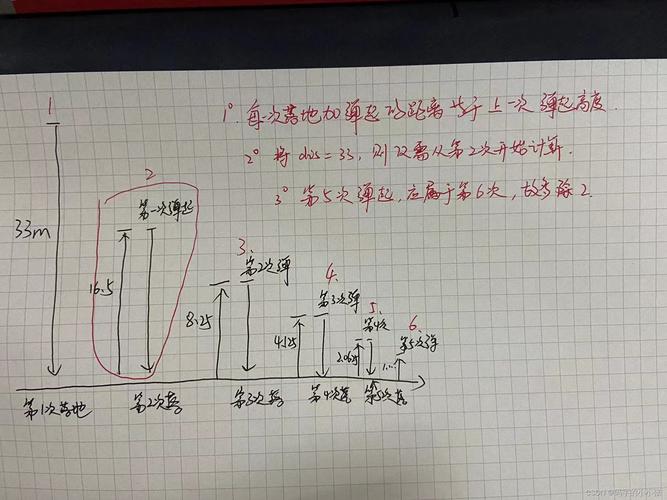 1° 每一次落地加弹起的距离等于上一次弹起高度.
2° 将dis=33, 则仅需从第2次开始计算.
3° 第5次弹起, 应属于第6次, 故多除2.
1
2
第一次弹起
33m
16.5
3.
第2次弹
8.25
4.
第3次弹
4.125
5.
第4次
2.0625
6.
第5次弹
1.…
第1次落地
第2次落
第3次落
第4次落
第5次落